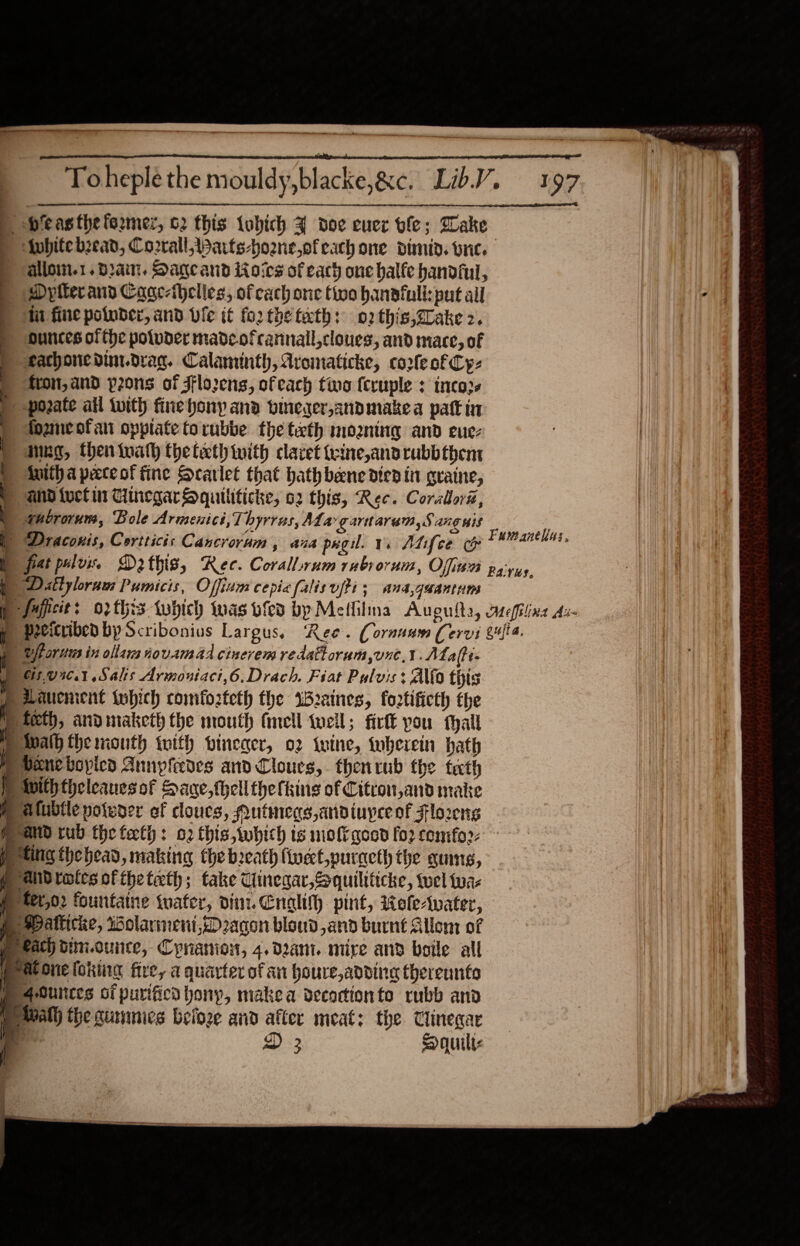 To heple the mouldy,blacke,&c. Lib.V. 197
vse as the former, or this which I doe euer vse; Take
white bread, Corrall, Harts-horne, of each one dimid. vnc.
allom. 1. dram. Sage and Roses of each one halfe handful,
Oyster and Egge-shelles, of each one two handfull: put all
in fine powder, and vse it for the tæth: or this, Take 2.
ounces of the powder made of cannall, cloues, and mace, of
each one dim. drag. Calamınth, Aromaticke, corse of Cy-
tron, and pyons of Florens, of each two scruple : incor-
porate all with fine hony and vineger, and make a past in
forme of an oppiate to rubbe the tæth morning and eue-
ning, then wash the tæth with claret wine, and rubb them
with a pæce of fine Scarlet that hath bæne died in graine,
and wet in Vinegar Squiliticke, or this, Rec. Corallorū,
rubrorum, Bole Armenici, Thyrrus, Margaritarum, Sanguis
Draconis, Corticis Cancrorum , ana pugil. 1. Misce & Fumanellus.
fiat pulvis. Or this, Rec. Corallorum rubrorum, Ossium Pairus.
Dactylorum Pumicis, Ossium cepiæ falis vsti ; ana, quantum
sufficit: or this which was vsed by Messilina Augusta, Messilina Au-
prescribed by Scribonius Largus. Rec . Cornuum Cervi gusta.
vstorum in ollam novam ad cinerem redactorum, vnc. 1. Masti-
cis. vnc. 1. Salis Armoniaci, 6. Drach. Fiat Pulvis : Also this
Lauement which comforteth the Braines, fortifieth the
tæth, and maketh the mouth smell well; first you shall
wash the mouth with vineger, or wine, wherein hath
bæne boyled Annysædes and Cloues, then rub the tæth
with the leaues of Sage, shell the skins of Citron, and make
a subtle powder of cloues, Nutmegs, and iuyce of Florens
and rub the tæth : or this, which is most good for comfor-
ting the head, making the breath swæt, purgeth the gums,
and rootes of the tæth; take Vinegar, Squiliticke, wel wa-
ter, or fountaine water, dim. English pint, Rose-water,
Masticke, Bolarmeni, Dragon bloud, and burnt Allom of
each dim. ounce, Cynamon, 4. dram. mixe and boile all
at one soking fire, a quarter of an houre, adding thereunto
4. ounces of purified hony, make a decoction to rubb and
wash the gummes before and after meat: the Vinegar
O 3 Squili-